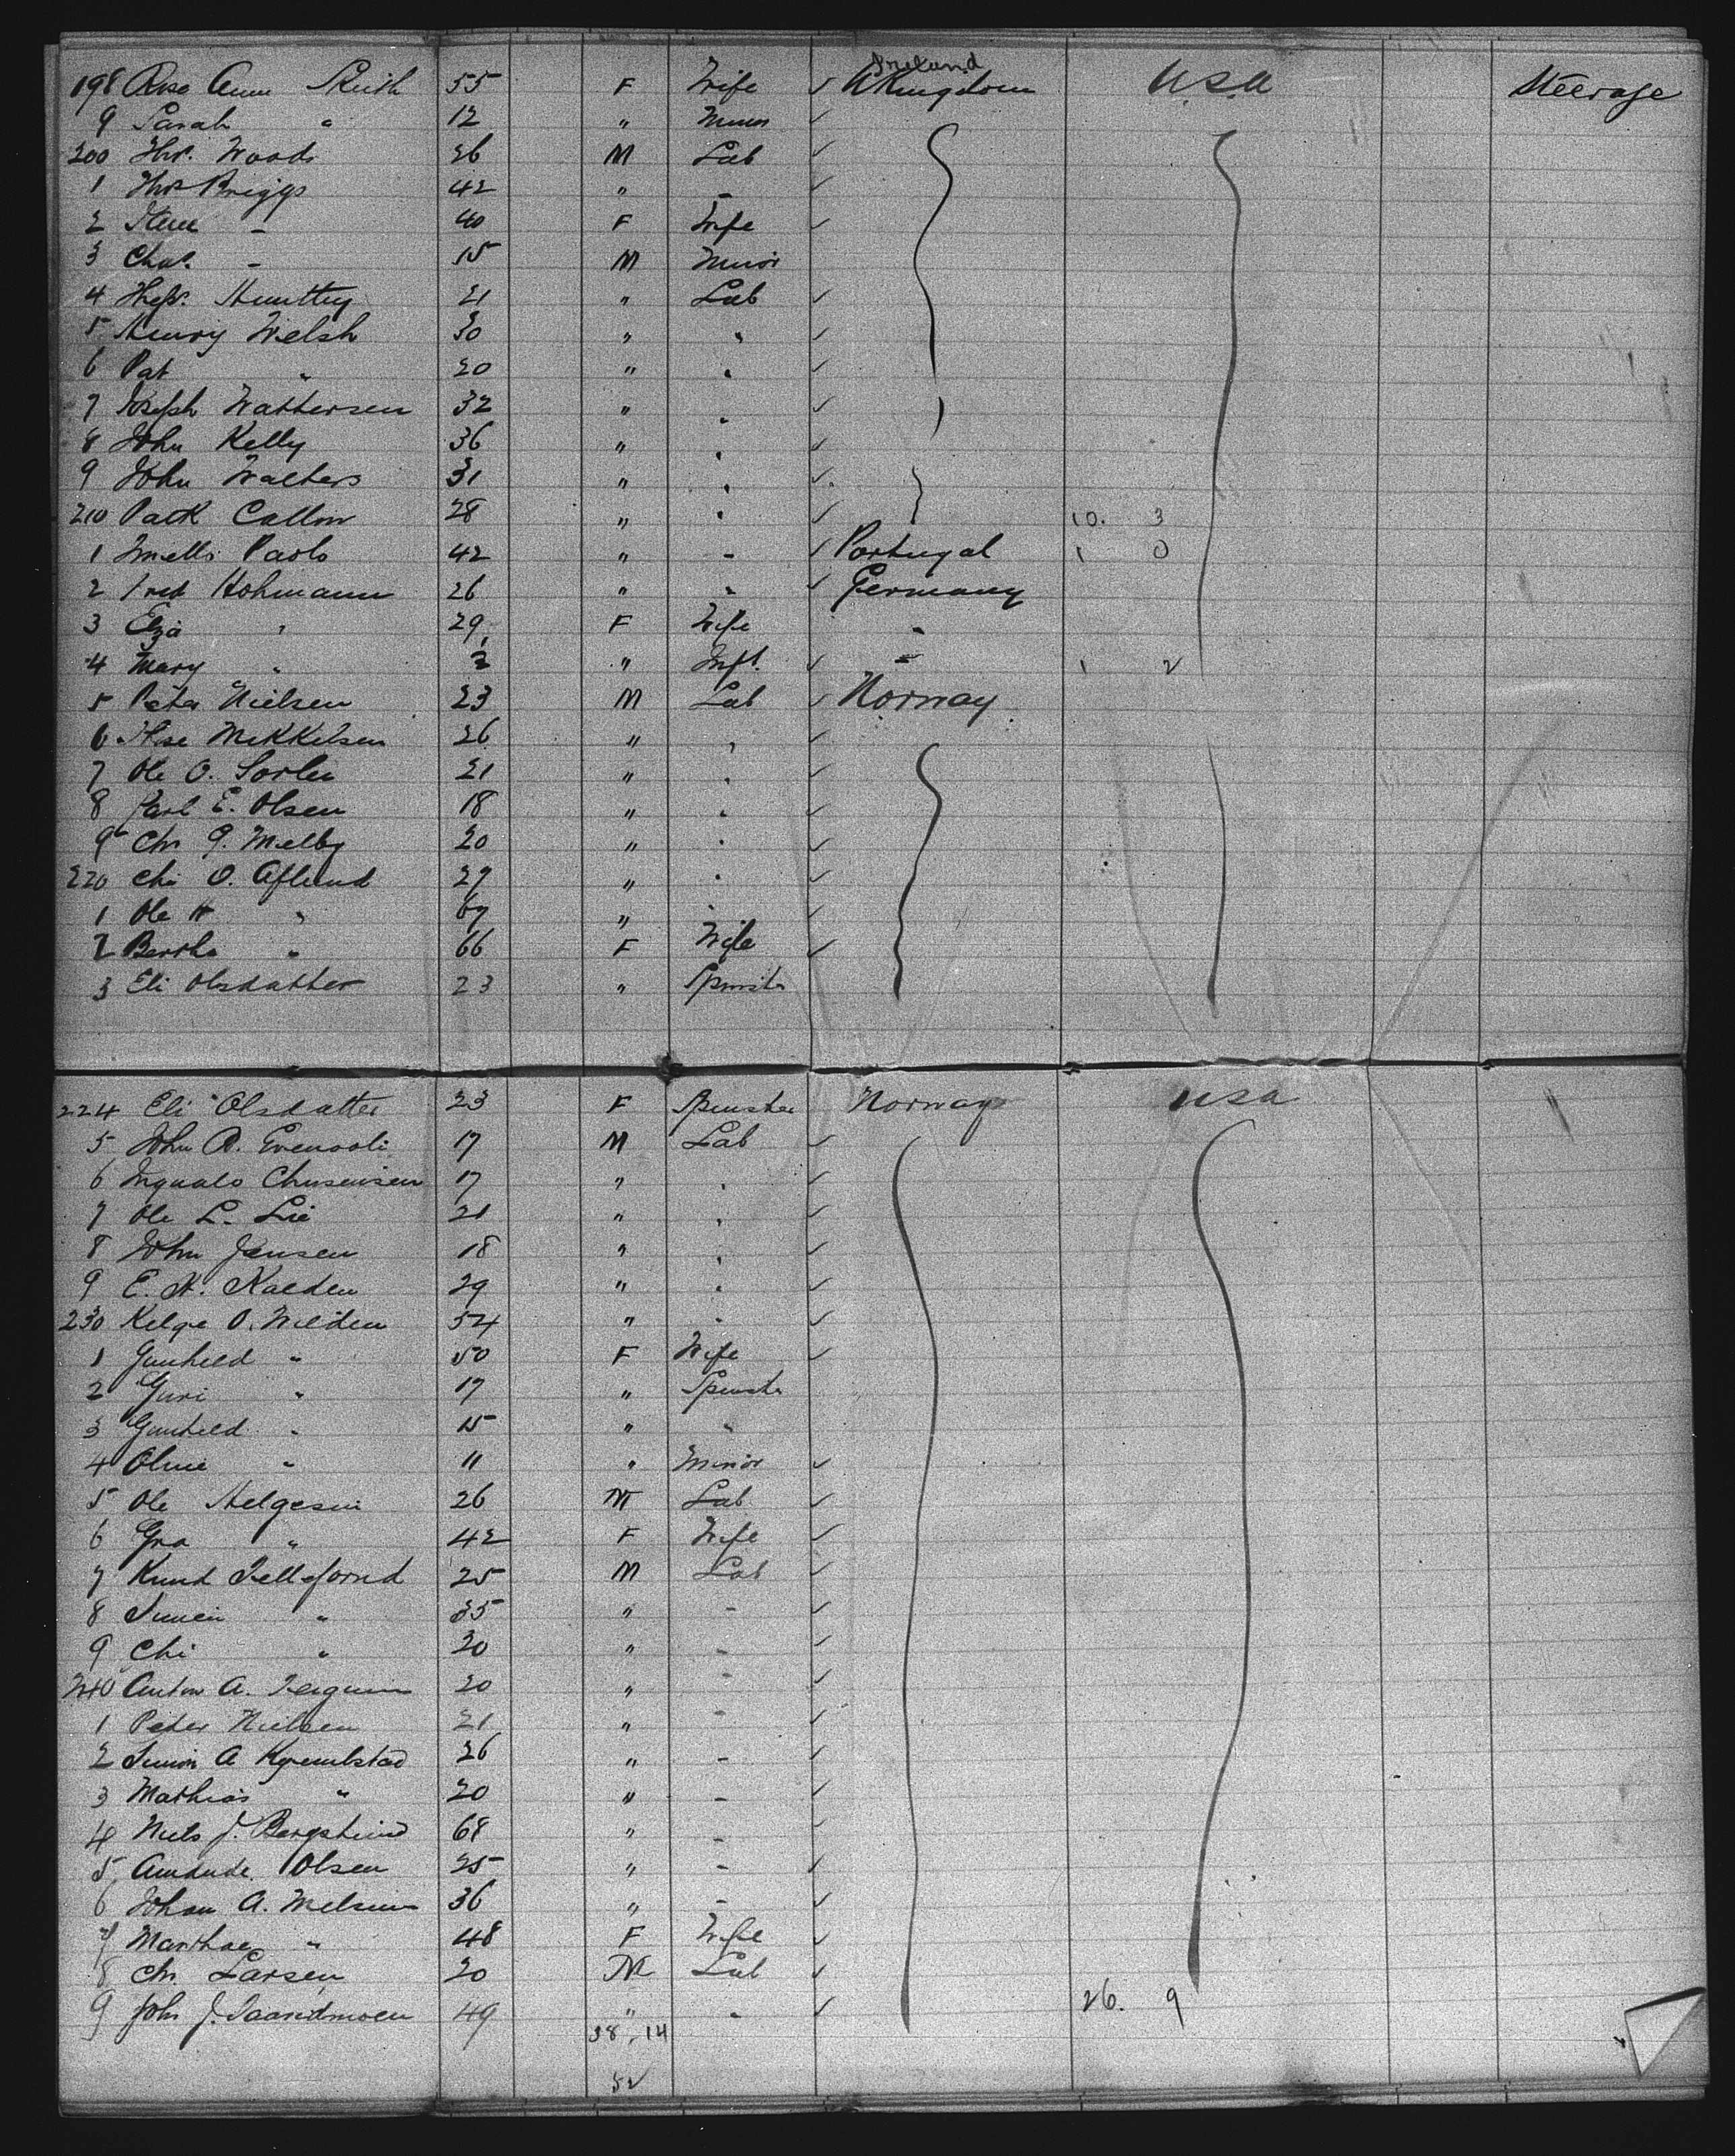 Ireland
198 Rose Ann Keith 55 F Wife ✓ UKingdom USA Steerage
9 Sarah " 12 " Minor ✓
200 Thos. Woods 26 M Lab ✓
1 Thos Briggs 42 " - ✓
2 Jane - 40 F Wife ✓
3 Chas. - 15 M Minor
4 Huntley 21 " Lab ✓
5 Henry Welsh 30 " " ✓
6 Pat " 20 " " ✓
7 Joseph Wattersen 32 " " ✓
8 John Kelly 36 " " ✓
9 John Walters 31 " " ✓
210 Patk Callon 28 " " ✓ 10. 3
1 Paolo 42 " - ✓ Portugal 1 0
2 Fred Hohmann 26 " " ✓ Germany
3 Eliza " 29 F Wife "
4 Mary " " Inft. ✓ " 1 2
5 Peter Nielsen 23 M Lab ✓ Norway
6 Mikkelsen 26 " " ✓
7 Ole O. Sorlie 21 " " ✓
8 Karl E. Olsen 18 " " ✓
9 Chr G. Melby 20 " " ✓
220 Chr O. Aflund 27 " " ✓
1 Ole H " 67 " " ✓
2 Bertha " 66 F Wife ✓
3 Eli Olsdatter 23 " Spinster
224 Eli Olsdatter 23 F Spinster Norway USA
5 John A. 17 M Lab ✓
6 17 " " ✓
7 Ole L. Lie 21 " " ✓
8 John Jensen 18 " " ✓
9 E. K. Kalden 29 " " ✓
230 Helge O. Wilden 54 " " ✓
1 Gunhild " 50 F Wife ✓
2 Guri " 17 " Spinster
3 Gunhild " 15 " "
4 Oline " 11 " Minor ✓
5 Ole Helgesen 26 M Lab ✓
6 Gro " 42 F Wife ✓
7 Knud 25 M Lab ✓
8 " 35 " - ✓
9 Chr " 20 " - ✓
240 Anton A. 20 " - ✓
1 Peder Nielsen 21 " - ✓
2 Simon A 26 " - ✓
3 Mathias " 20 " - ✓
4 Niels J. 68 " - ✓
5 Olsen 25 " - ✓
6 Johan A. 36 " - ✓
7 Marthae " 48 F Wife ✓
8 Chr. Larsen 20 M Lab ✓
9 John J. Saandmoen 49 " " ✓ 26. 9
38, 14
52